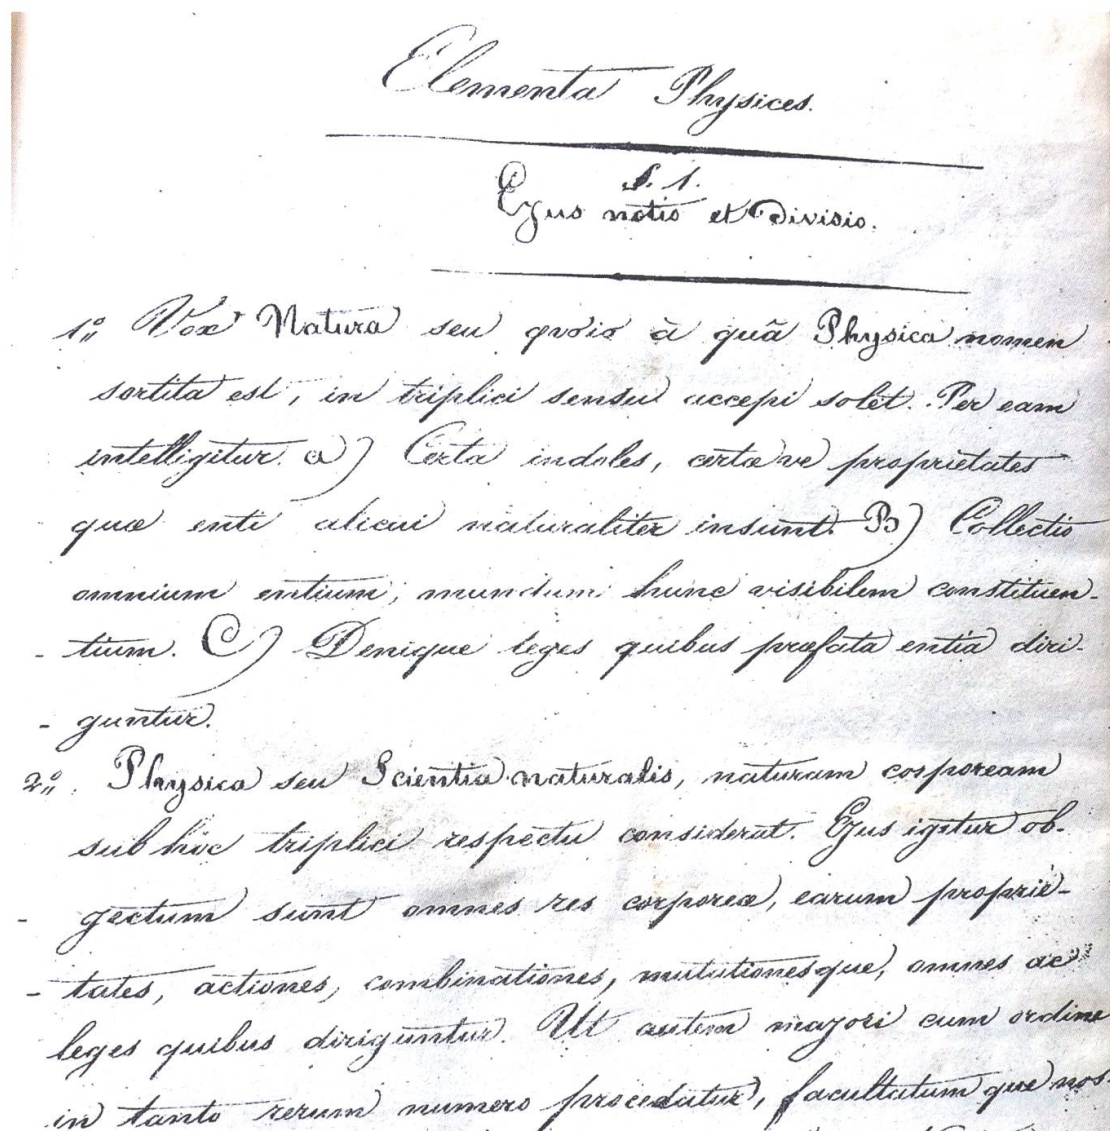 Elementa Physices.
§. 1.
Ejus notio et Divisio.
1º,, Vox Natura seu φυσις à quâ Physica nomen
sortita est, in triplici sensu accepi solet. Per eam
intelligitur. a) Certa indoles, certæ ve proprietates
quæ enti alicui naturaliter insunt. B) Collectio
omnium entium, mundum hunc visibilem constituen-
- tium. C) Denique leges quibus præfata entia diri-
- guntur.
2º,,. Physica seu Scientia naturalis, naturam corpoream
sub hôc triplici respectu considerat. Ejus igitur ob-
- jectum sunt omnes res corporeæ, earum proprie-
- tates, actiones, combinationes, mutationesque, omnes ac
leges quibus diriguntur. Ut autem majori cum ordine
in tanto rerum numero procedatur, facultatumque nos